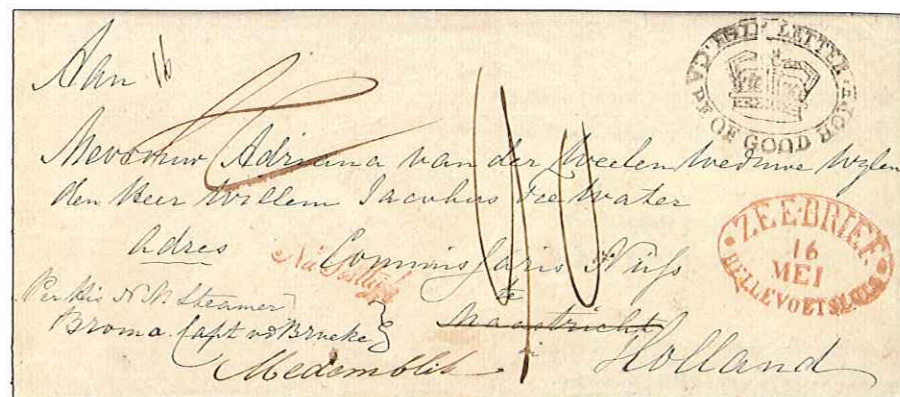 Aan 16
SHIP LETTER
CAPE OF GOOD HOPE
Mevrouw Adriana van der Weelen weduwe Wylen
den Heer Willem Jacobus Dee Water
adres Commissaris Nuss
Na Posttyd
ZEE-BRIEF
16
MEI
HELLEVOETSLUIS
te
Per His N M Steamer
Maastricht
Broma Capt vd Brucke
Medemblik Holland